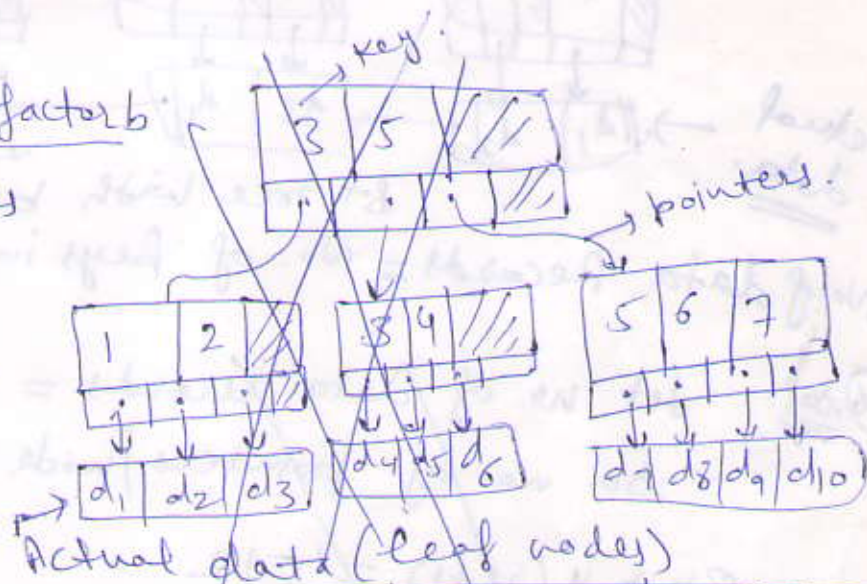 key.
factor b
3 5
s
pointers.
1 2
3 4
5 6 7
d1 d2 d3
d4 d5 d6
d7 d8 d9 d10
Actual data (leaf nodes)